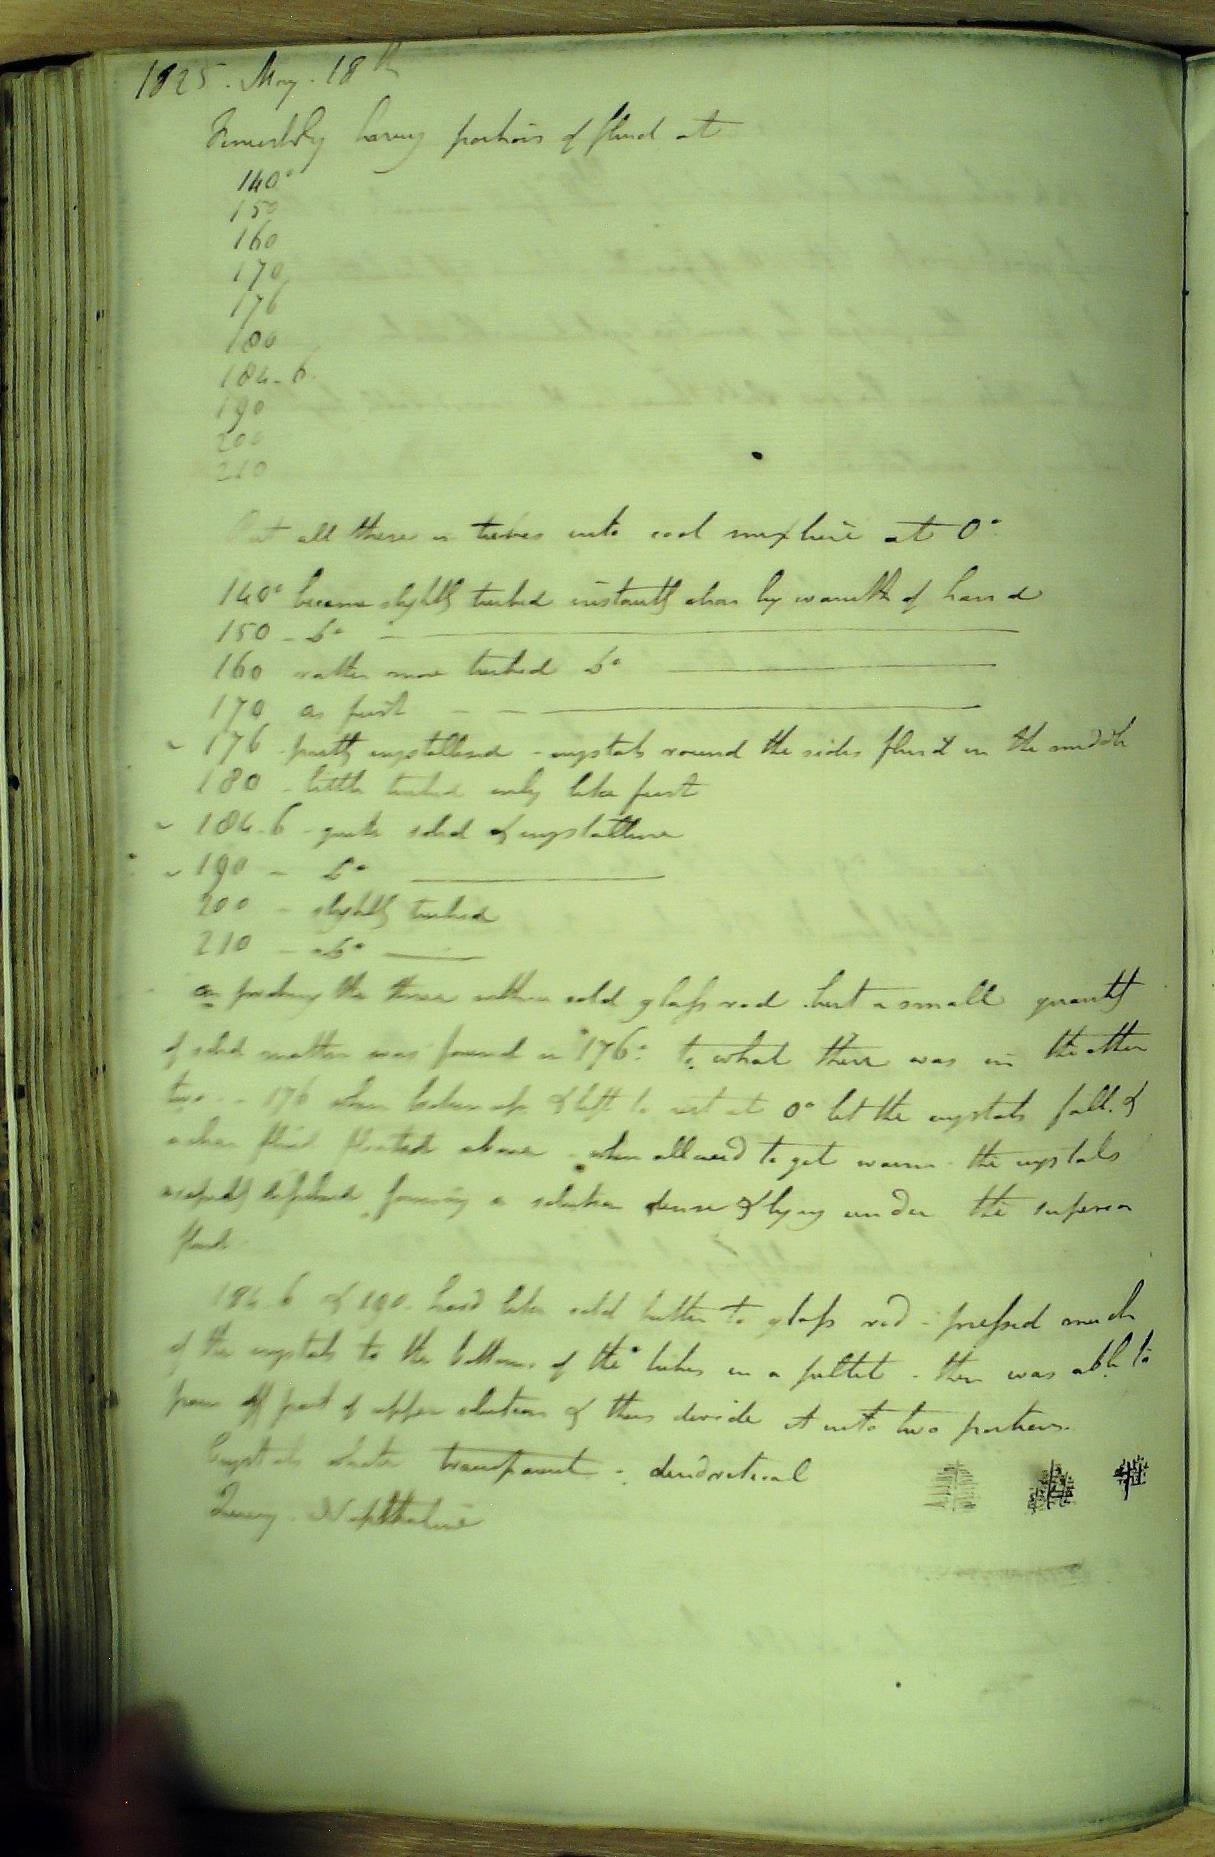 1825. May. 18th
having portions of fluid at
140°
150
160
170
176
180
184.6
190
200
210
Put all these in tubes into cool mixture at 0°
140° became slightly turbid instantly clear by warmth of hand
150 - Do
160 rather more turbid Do
170 as first
176 - partly crystallized - crystals round the sides fluid in the middle
180 - little turbid only like first
184.6 - quite solid & crystalline
190 - Do
200 - slightly turbid
210 - Do
on the three with a cold glass rod but a small quantity
of solid matter was found in 176° to what there was in the other
two - 176 when broken up & left to rest at 0° let the crystals fall &
a clear fluid floated above - when allowed to get warm the crystals
forming a solution dense & lying under the superior
fluid
184.6 & 190 hard like cold butter to glass rod - pressed much
of the crystals to the bottoms of the tubes in a - then was able to
pour off part of upper solution & thus divide it into two portions.
Crystals white transparent - dendritical
Query. Naphthaline